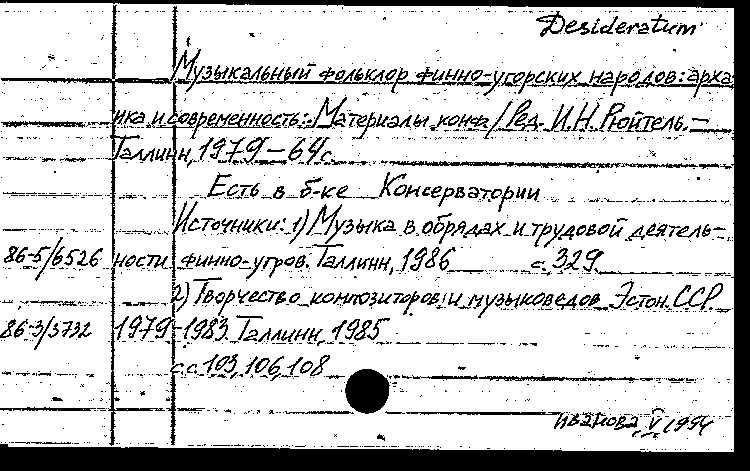 Desideratum
Музыкальный фольклор финно-угорских народов: арха
ика и современность: Материалы конф / Ред. И.Н. Рюйтель. —
Таллинн, 1979 — 64 с.
Есть в б-ке Консерватории
Источники: 1) Музыка в обрядах и трудовой деятель-
86-5/6526 ности финно-угров. Таллинн, 1986 с. 329
2) Творчество композиторов и музыковедов Эстон. ССР.
86-3/3732 1979-1983 Таллинн, 1985
с.с 103, 106, 108
Иванова V 1994